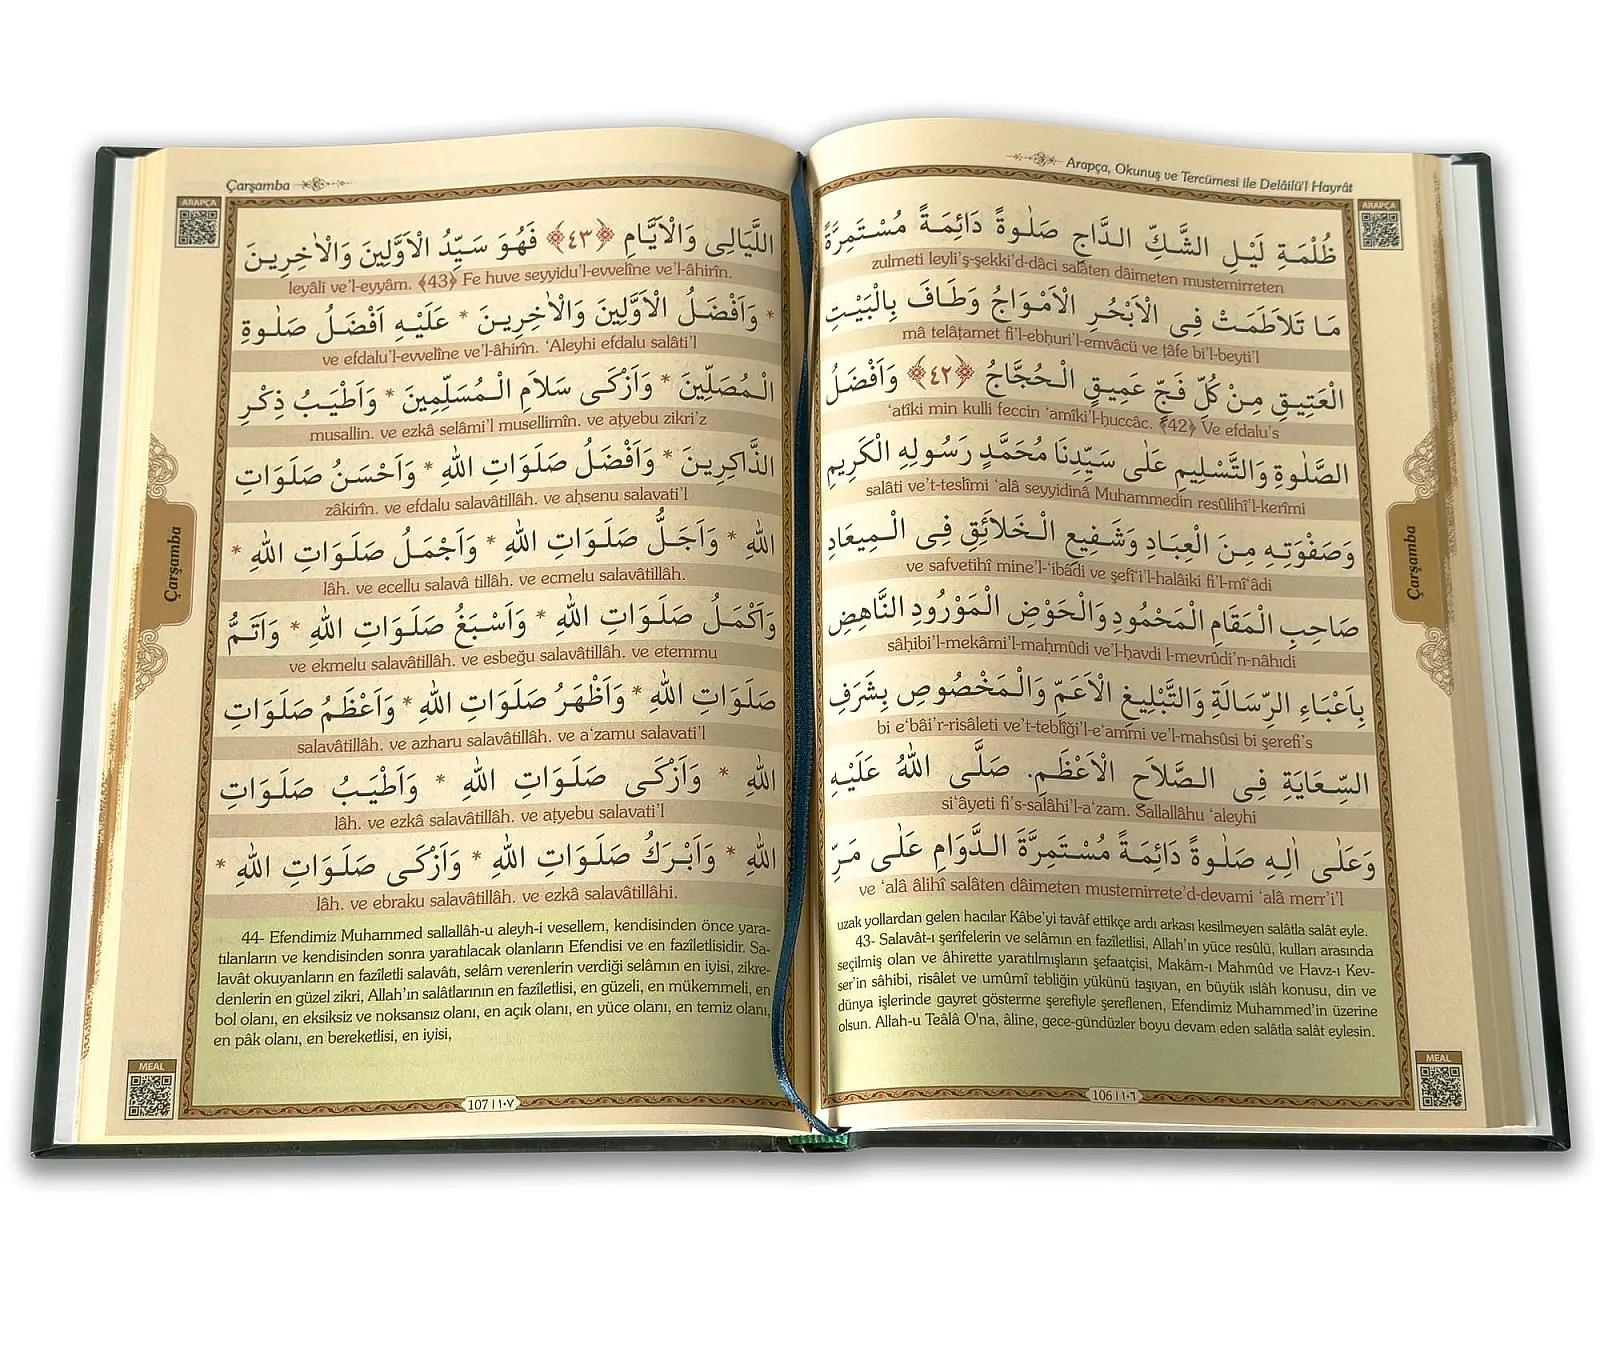 Arapça, Okunuş ve Tercümesi ile Delâilü'l Hayrât
ARAPÇA
ظُلْمَةِ لَيْلِ الشَّكِّ الدَّاجِ صَلٰوةً دَائِمَةً مُسْتَمِرَّةً
zulmeti leyli'ş-şekki'd-dâci salâten dâimeten mustemirreten
مَا تَلَاطَمَتْ فِى الْاَبْحُرِ الْاَمْوَاجُ وَطَافَ بِالْبَيْتِ
mâ telâţamet fi'l-ebḥuri'l-emvâcü ve ţâfe bi'l-beyti'l
الْعَتِيقِ مِنْ كُلِّ فَجٍّ عَمِيقٍ الْحُجَّاجُ ﴿٤٢﴾ وَاَفْضَلُ
'atîki min kulli feccin 'amîki'l-ḥuccâc. ﴾42﴿ Ve efdalu's
الصَّلٰوةِ وَالتَّسْلِيمِ عَلٰى سَيِّدِنَا مُحَمَّدٍ رَسُولِهِ الْكَرِيمِ
salâti ve't-teslîmi 'alâ seyyidinâ Muhammedin resûlihî'l-kerîmi
وَصَفْوَتِهِ مِنَ الْعِبَادِ وَشَفِيعِ الْخَلَائِقِ فِى الْمِيعَادِ
ve safvetihî mine'l-'ibâdi ve şefî'i'l-halâiki fi'l-mî'âdi
صَاحِبِ الْمَقَامِ الْمَحْمُودِ وَالْحَوْضِ الْمَوْرُودِ النَّاهِضِ
sâḥibi'l-mekâmi'l-maḥmûdi ve'l-ḥavdi l-mevrûdi'n-nâhıdi
بِاَعْبَاءِ الرِّسَالَةِ وَالتَّبْلِيغِ الْاَعَمِّ وَالْمَخْصُوصِ بِشَرَفِ
bi e'bâi'r-risâleti ve't-teblîği'l-e'ammi ve'l-mahsûsi bi şerefi's
السِّعَايَةِ فِى الصَّلَاحِ الْاَعْظَمِ. صَلَّى اللّٰهُ عَلَيْهِ
si'âyeti fi's-salâhi'l-a'zam. Sallallâhu 'aleyhi
وَعَلٰى اٰلِهِ صَلٰوةً دَائِمَةً مُسْتَمِرَّةَ الدَّوَامِ عَلٰى مَرِّ
ve 'alâ âlihî salâten dâimeten mustemirrete'd-devami 'alâ merr'i'l
uzak yollardan gelen hacılar Kâbe'yi tavâf ettikçe ardı arkası kesilmeyen salâtla salât eyle.
43- Salavât-ı şerîfelerin ve selâmın en fazîletlisi, Allah'ın yüce resûlü, kulları arasında
seçilmiş olan ve âhirette yaratılmışların şefaatçisi, Makâm-ı Mahmûd ve Havz-ı Kev-
ser'in sâhibi, risâlet ve umûmî tebliğin yükünü taşıyan, en büyük ıslâh konusu, din ve
dünya işlerinde gayret gösterme şerefiyle şereflenen, Efendimiz Muhammed'in üzerine
olsun. Allah-u Teâlâ O'na, âline, gece-gündüzler boyu devam eden salâtla salât eylesin.
Çarşamba
MEAL
106 | ١٠٦
Çarşamba
ARAPÇA
اللَّيَالِى وَالْاَيَّامِ ﴿٤٣﴾ فَهُوَ سَيِّدُ الْاَوَّلِينَ وَالْاٰخِرِينَ
leyâli ve'l-eyyâm. ﴾43﴿ Fe huve seyyidu'l-evvelîne ve'l-âhirîn.
* وَاَفْضَلُ الْاَوَّلِينَ وَالْاٰخِرِينَ * عَلَيْهِ اَفْضَلُ صَلٰوةِ
ve efdalu'l-evvelîne ve'l-âhirîn. 'Aleyhi efdalu salâti'l
الْمُصَلِّينَ * وَاَزْكَى سَلَامِ الْمُسَلِّمِينَ * وَاَطْيَبُ ذِكْرِ
musallin. ve ezkâ selâmi'l musellimîn. ve aţyebu zikri'z
الذَّاكِرِينَ * وَاَفْضَلُ صَلَوَاتِ اللّٰهِ * وَاَحْسَنُ صَلَوَاتِ
zâkirîn. ve efdalu salavâtillâh. ve aḥsenu salavati'l
اللّٰهِ * وَاَجَلُّ صَلَوَاتِ اللّٰهِ * وَاَجْمَلُ صَلَوَاتِ اللّٰهِ *
lâh. ve ecellu salavâ tillâh. ve ecmelu salavâtillâh.
وَاَكْمَلُ صَلَوَاتِ اللّٰهِ * وَاَسْبَغُ صَلَوَاتِ اللّٰهِ * وَاَتَمُّ
ve ekmelu salavâtillâh. ve esbeğu salavâtillâh. ve etemmu
صَلَوَاتِ اللّٰهِ * وَاَظْهَرُ صَلَوَاتِ اللّٰهِ * وَاَعْظَمُ صَلَوَاتِ
salavâtillâh. ve azharu salavâtillâh. ve a'zamu salavati'l
اللّٰهِ * وَاَزْكَى صَلَوَاتِ اللّٰهِ * وَاَطْيَبُ صَلَوَاتِ
lâh. ve ezkâ salavâtillâh. ve aţyebu salavati'l
اللّٰهِ * وَاَبْرَكُ صَلَوَاتِ اللّٰهِ * وَاَزْكَى صَلَوَاتِ اللّٰهِ *
lâh. ve ebraku salavâtillâh. ve ezkâ salavâtillâhi.
44- Efendimiz Muhammed sallallâh-u aleyh-i vesellem, kendisinden önce yara-
tılanların ve kendisinden sonra yaratılacak olanların Efendisi ve en fazîletlisidir. Sa-
lavât okuyanların en fazîletli salavâtı, selâm verenlerin verdiği selâmın en iyisi, zikre-
denlerin en güzel zikri, Allah'ın salâtlarının en fazîletlisi, en güzeli, en mükemmeli, en
bol olanı, en eksiksiz ve noksansız olanı, en açık olanı, en yüce olanı, en temiz olanı,
en pâk olanı, en bereketlisi, en iyisi,
Çarşamba
MEAL
107 | ١٠٧